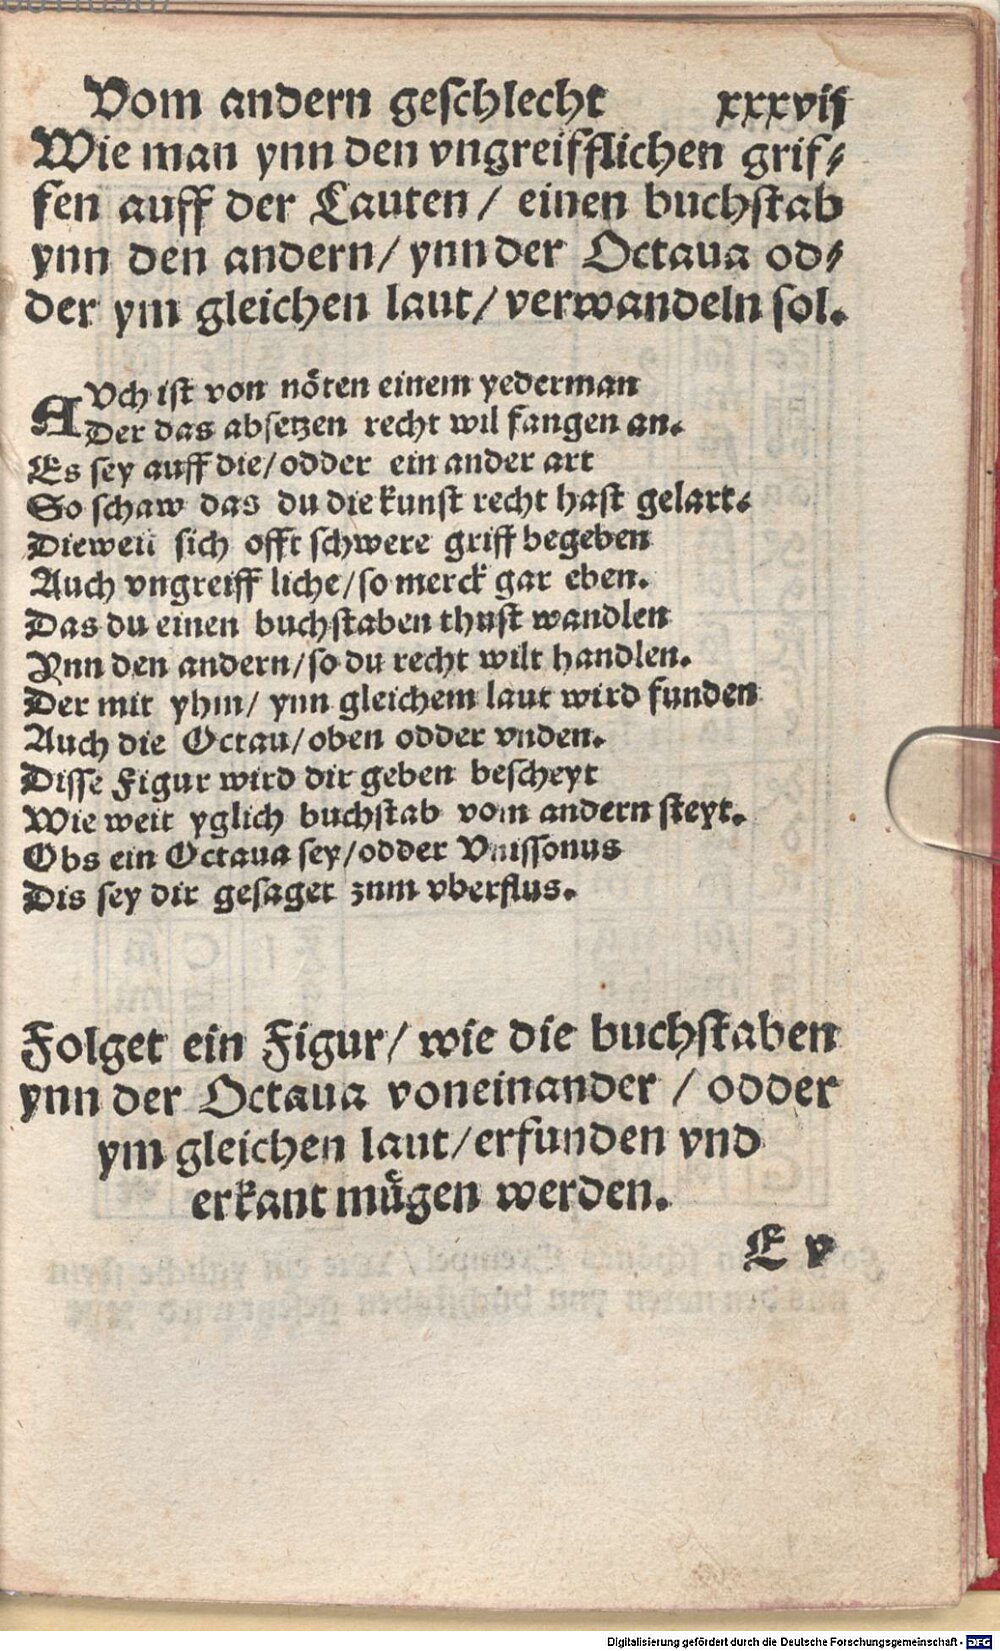 Vom andern geschlecht xxxvij
Wie man ynn den vngreifflichen grif⸗
fen auff der Lauten / einen buchstab
ynn den andern / ynn der Octaua od⸗
der ym gleichen laut / verwandeln sol.
AVch ist von nöten einem yederman
Der das absetzen recht wil fangen an.
Es sey auff die / odder ein ander art
So schaw das du die kunst recht hast gelart.
Dieweil sich offt schwere griff begeben
Auch vngreiff liche / so merck gar eben.
Das du einen buchstaben thust wandlen
Ynn den andern / so du recht wilt handlen.
Der mit yhm / ynn gleichem laut wird funden
Auch die Octau / oben odder vnden.
Disse Figur wird dir geben bescheyt
Wie weit yglich buchstab vom andern steyt.
Obs ein Octaua sey / odder Vnissonus
Dis sey dir gesaget zum vberflus.
Folget ein Figur / wie die buchstaben
ynn der Octaua voneinander / odder
ym gleichen laut / erfunden vnd
erkant mügen werden.
E v
Digitalisierung gefördert durch die Deutsche Forschungsgemeinschaft - DFG